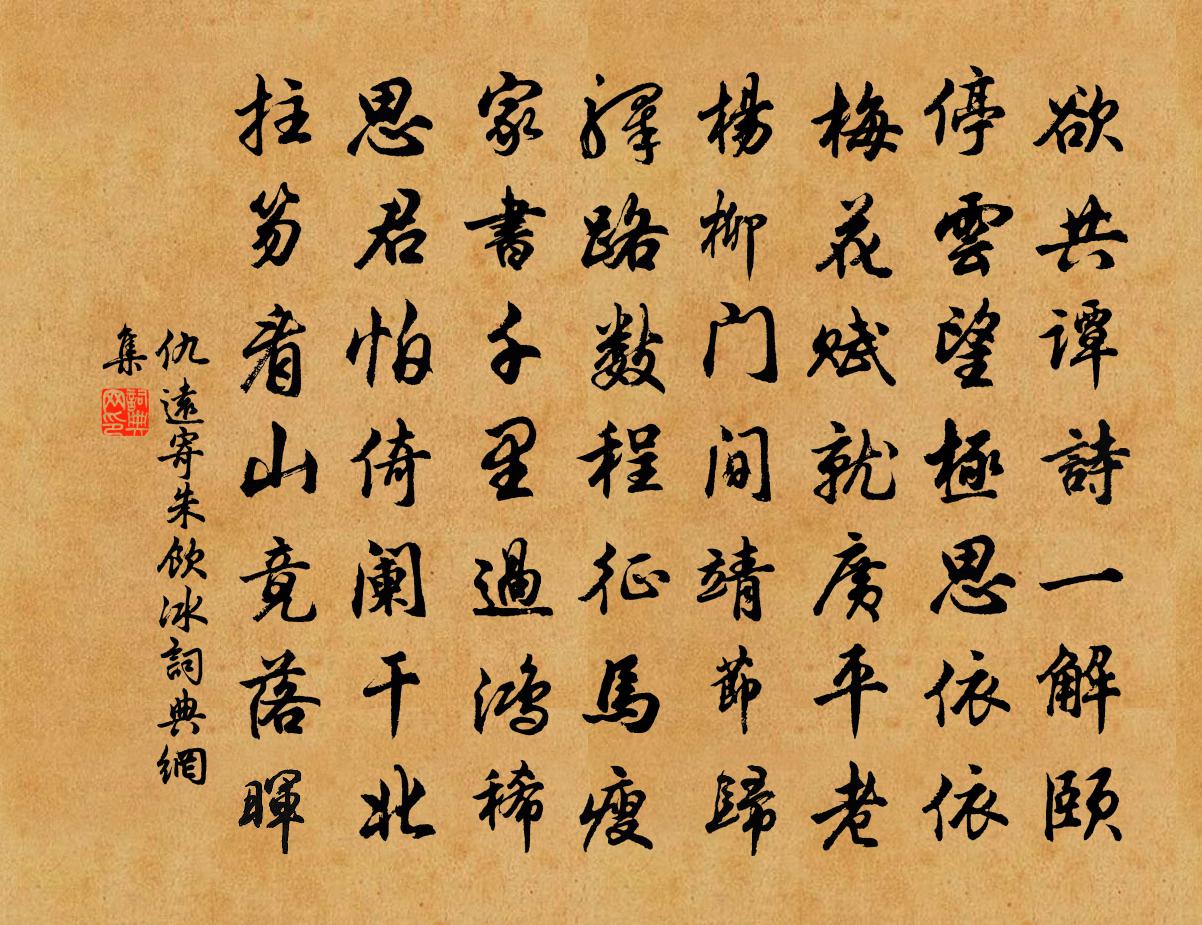 欲共譚詩一解頤
停雲望極思依依
梅花賦就廣平老
楊柳門閒靖節歸
驛路數程征馬瘦
家書千里過鴻稀
思君怕倚闌干北
拄笏看山竟落暉
仇遠寄朱飲冰詞典網
集
詞典網印